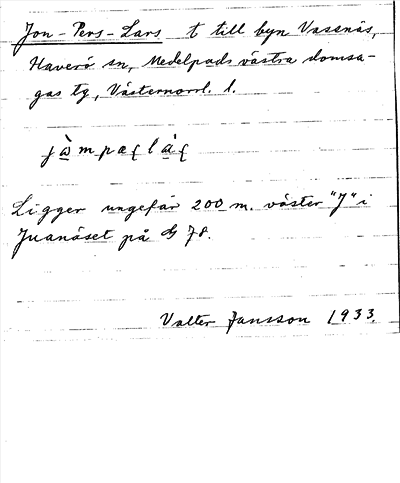 Jon-Pers-Lars t till byn Vassnäs,
Haverö sn, Medelpads västra domsa-
gas tg, Västernorrl. l.
Ligger ungefär 200 m. väster "J" i
Juanäset på 78.
Valter Jansson 1933.